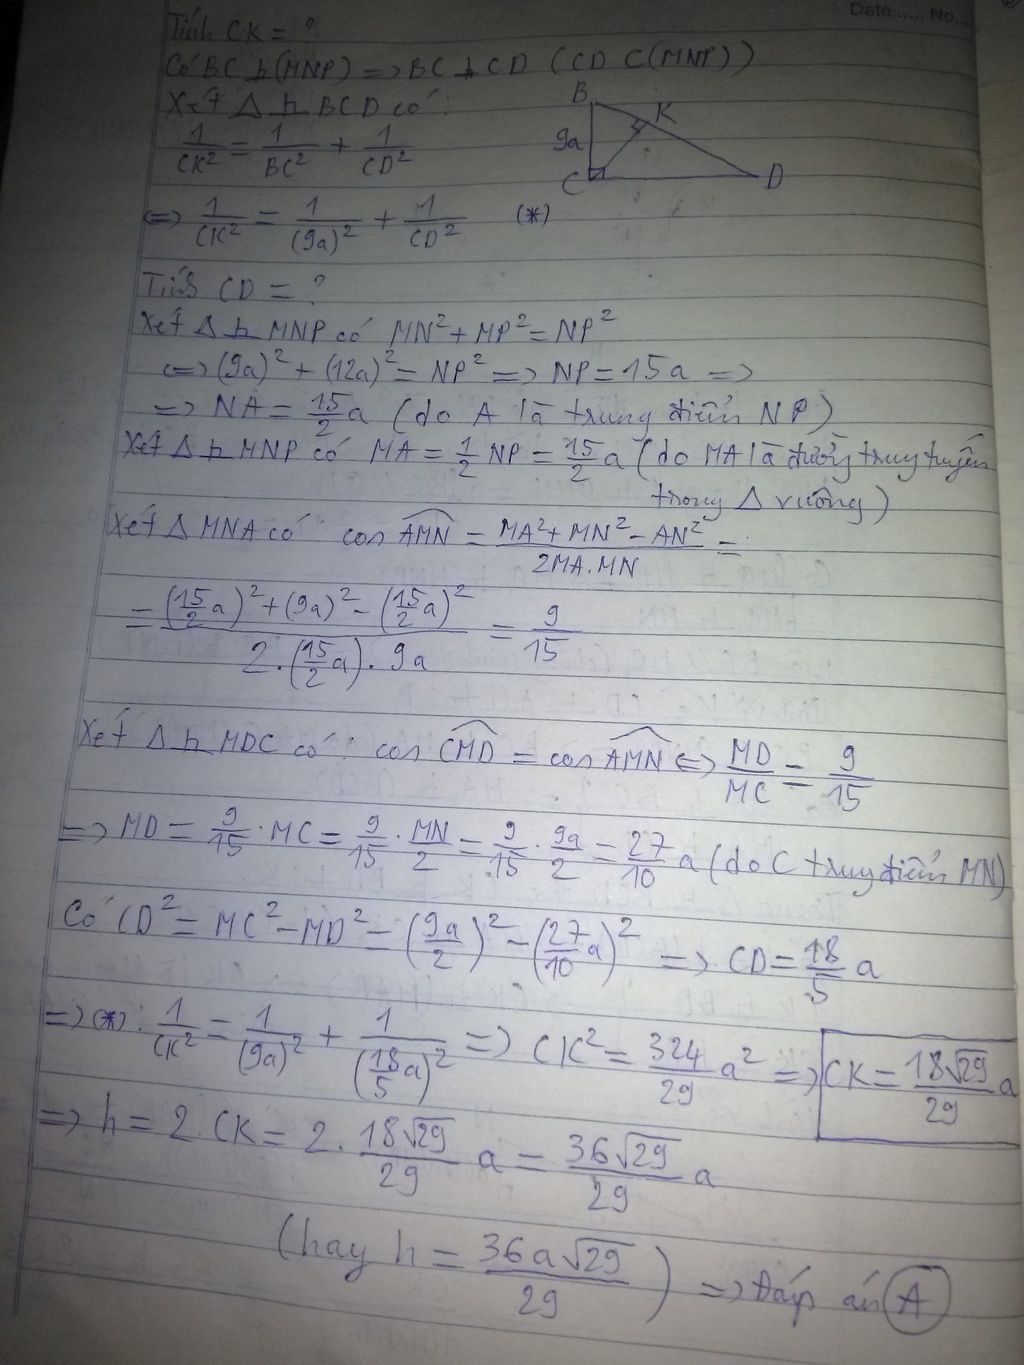 Date...... No...
Tính CK = ?
Có BC ⊥ (MNP) => BC ⊥ CD (CD ⊂ (MNP))
Xét Δ ⊥ BCD có:
1/CK² = 1/BC² + 1/CD²
B
K
9a
C
D
<=> 1/CK² = 1/(9a)² + 1/CD² (*)
Tính CD = ?
Xét Δ ⊥ MNP có MN² + MP² = NP²
<=> (9a)² + (12a)² = NP² => NP = 15a =>
=> NA = 15/2 a (do A là trung điểm NP)
Xét Δ ⊥ MNP có MA = 1/2 NP = 15/2 a (do MA là đường trung tuyến
trong Δ vuông)
Xét Δ MNA có cos AMN = (MA² + MN² - AN²)/(2MA.MN) =
= ((15/2 a)² + (9a)² - (15/2 a)²)/(2.(15/2 a).9a) = 9/15
Xét Δ ⊥ MDC có: cos CMD = cos AMN <=> MD/MC = 9/15
=> MD = 9/15 . MC = 9/15 . MN/2 = 9/15 . 9a/2 = 27/10 a (do C trung điểm MN)
Có CD² = MC² - MD² = (9a/2)² - (27/10 a)² => CD = 18/5 a
=> (*): 1/CK² = 1/(9a)² + 1/(18/5 a)² => CK² = 324/29 a² => CK = 18√29/29 a
=> h = 2.CK = 2. 18√29/29 a = 36√29/29 a
(hay h = 36a√29/29) => Đáp án A